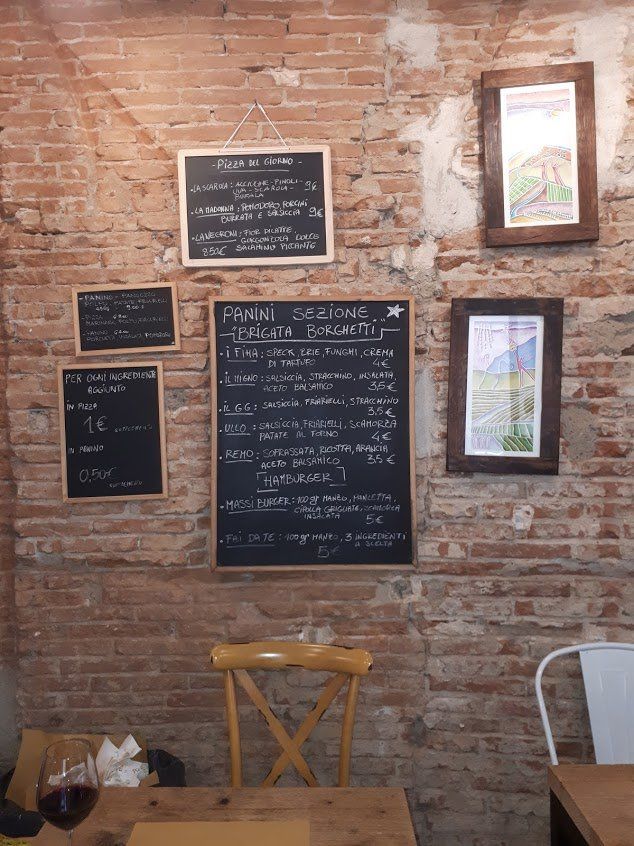 - PIZZA DEL GIORNO -
- LA SCAROLA : ACCIUGHE - PINOLI
UVA - SCAROLA - 9€
BUFALA
- LA MADONNA : POMODORO PORCINI
BURRATA E SALSICCIA 9€
- LA NEGRONI : FIOR DI LATTE
GORGONZOLA DOLCE
8.50€ SALAMINO PICCANTE
- PANINO -
- PIZZA
- PANINO
PER OGNI INGREDIENTE
AGGIUNTO
IN PIZZA
1€ SUPPLEMENTO
IN PANINO
0,50€
SUPPLEMENTO
PANINI SEZIONE
"BRIGATA BORGHETTI"
- FUNGHI, CREMA
DI TARTUFO 4€
- IL MIGNO : SALSICCIA, STRACCHINO, INSALATA,
ACETO BALSAMICO 3,5€
- IL G.G. : SALSICCIA, FRIARIELLI, STRACCHINO
3,5€
- ULLO : SALSICCIA, FRIARIELLI, SCAMORZA
PATATE AL FORNO 4€
- REMO : SOPRASSATA, RICOTTA, ARANCIA
ACETO BALSAMICO 3,5€
HAMBURGER
- MASSI BURGER : 100 gr MANZO,
CIPOLLA GRIGLIATE, SCAMORZA
INSALATA 5€
- FAI DA TE : 100 gr MANZO, 3 INGREDIENTI
A SCELTA
5€